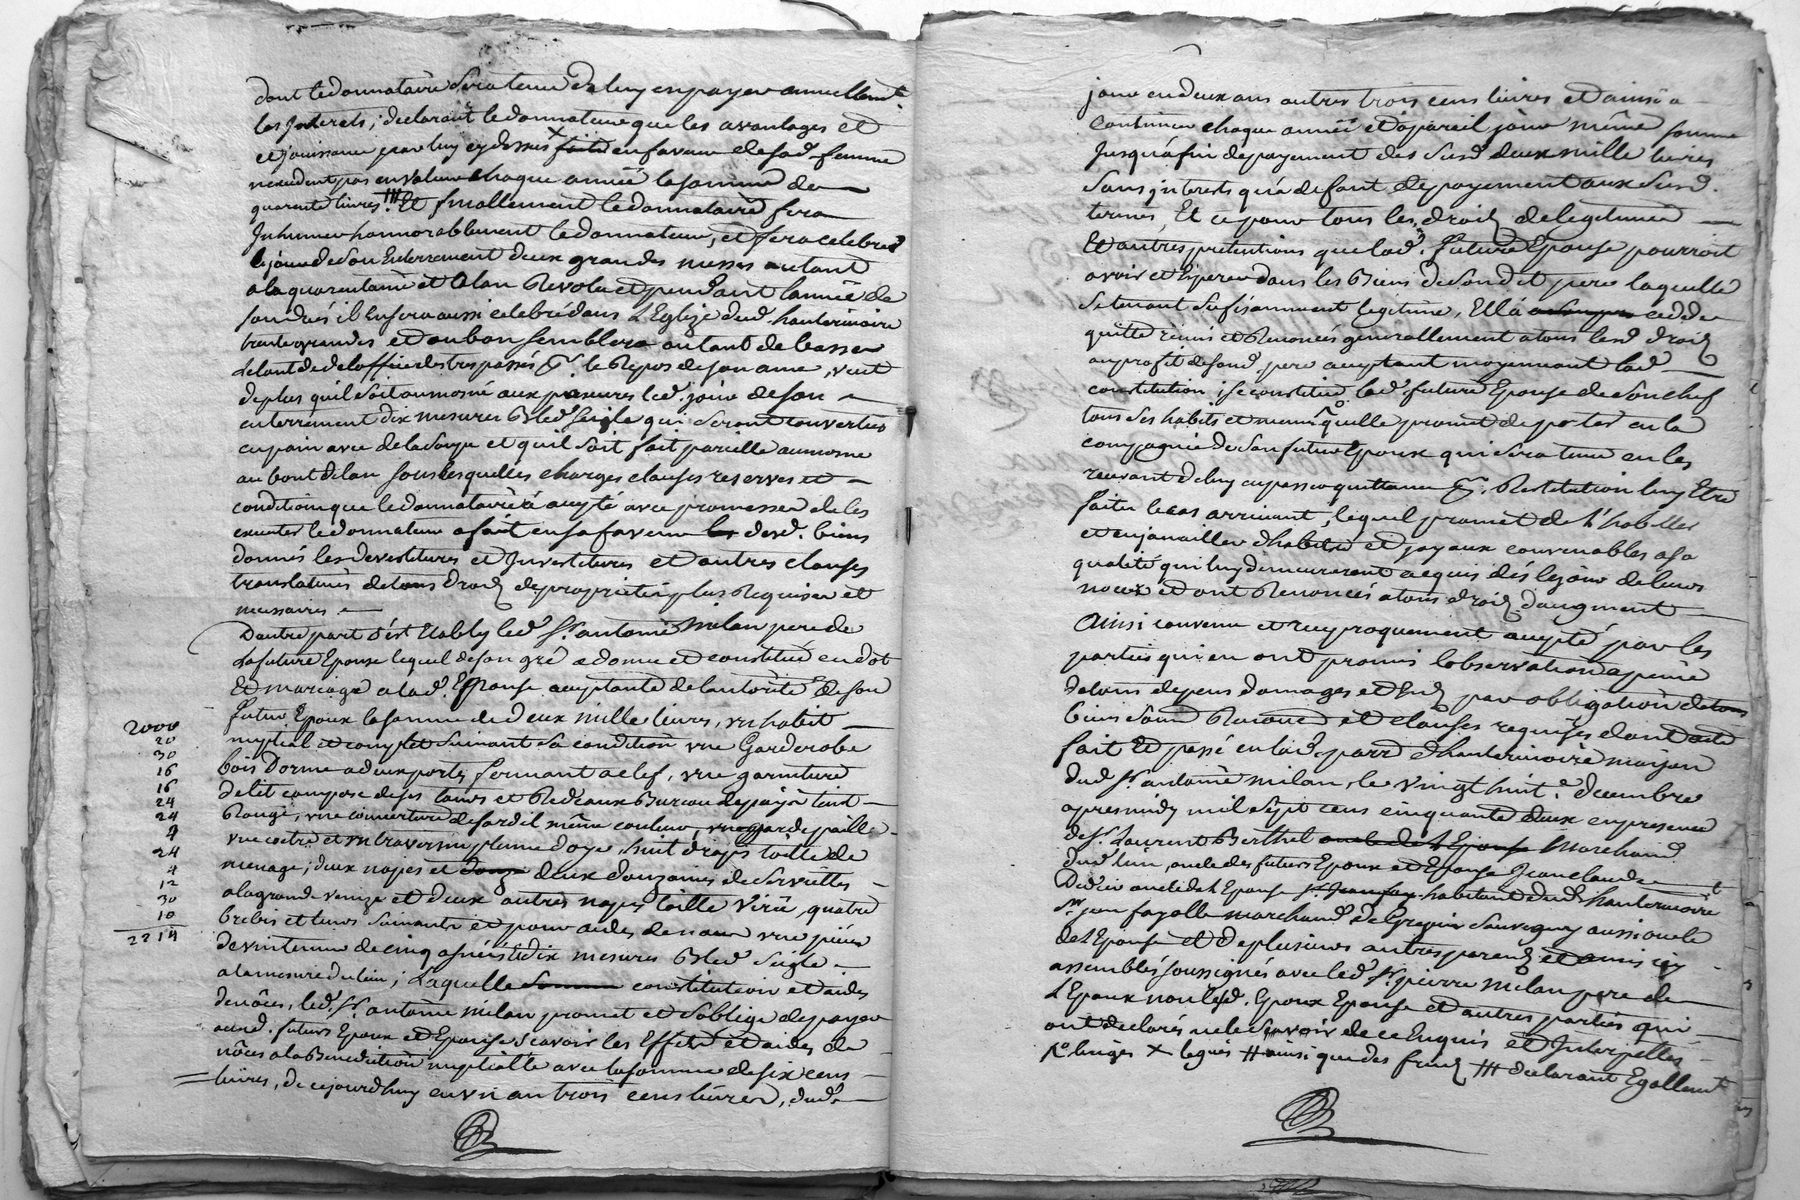 dont le donnataire sera tenu de luy en payer annuellemt
les Jnterets; declarant le donnateur que les avantages et
et jouissance par luy cy dessus X faits en faveur de sad. femme
n'excedent pas en valeur chaque année la somme de
quarante livres. ### Et finallement le donnataire fera
Jnhumer honnorablement le donnateur, et fera celebrer
le jour de son Enterrement deux grandes messes autant
a la quarantaine et alan Revolu et pendant l'année de
son decés il En fera aussi celebré dans L'Eglize dud. hauterivoire
trente grandes et ou bon semblera autant de basses
le tout de de l'office des trespassés pr. le Repos de son ame, veut
de plus qu'il soit aumoné aux pauvres led. jour de son
enterrement dix mesures Bled seigle qui seront converties
en pain avec de la soupe et qu'il soit fait pareille aumosne
au bout de lan sous lesquelles charges clauses reserves et
conditions que le donnataire a accepté avec promesse de les
executer le donnateur a fait en sa faveur les desd. biens
donnés les devestitures et Jnvestitures et autres clauses
translatives de tous droits de proprieté plus Requises et
necessaires
D'autre part s'est Etably led. Sr. antoine Milan pere de
La future Epouse lequel de son gré a donné et constitué en dot
Et mariage a lad. Epouse acceptante de l'autorité de son
futur Epoux la somme de deux mille livres, un habit
2000
nuptial et complet suivant sa condition une Garderobe
20
30
bois Dorme a deux portes fermant a clef, une garniture
16
de lit composé de ses tours et Rideaux Bureau de pays teint
16
24
Rouge, une couverture de sardis même couleur, une garde paille
24
4
une coitre et un traversin plume d'oye huit draps toille de
24
menage; deux napes et douze deux douzaines de serviettes
4
12
a la grande venize et deux autres napes toille Virée, quatre
30
brebis et leurs suivants et pour aides de noces une piece
10
2214
de vin tenue de cinq asnées et dix mesures Bled seigle
a la mesure du lieu; Laquelle somme constitution et aides
de nôces, led. Sr. antoine milan promet et s'oblige de payer
ausd. futurs Epoux et Epouse scavoir les Effets et aides de
nôces a la Benediction nuptialle avec la somme de six cens
livres, de cejourd'huy en un an trois cens livres, dud.
jour en deux ans autres trois cens livres et ainsi a
continuer chaque année et a pareil jour même somme
Jusqu'a fin de payement des susd. deux mille livres
sans jnterets qu'a defaut de payement aux susd.
termes, Et ce pour tous les droits de legitime
Et autres pretentions que lad. future Epouse pourroit
avoir et Esperer dans les Biens de sondit pere laquelle
se tenant sufisamment legitimé, Ell'a cedde
quitte remis et Renoncés generallement a tous lesd. droits
au profit de sond. pere acceptant moyennant lad.
constitution; se constitue lad. future Epouse de son chef
tous ses habits et quelle promet de porter en la
compagnie de son futur Epoux qui sera tenu en les
recevant de luy en passer quittance pr. Restitution luy Etre
faite le cas arrivant, lequel promet de L'habiller
et enjoailler d'habits et joyaux convenables a sa
qualité qui luy demeureront acquis dés le jour de leurs
noces et ont Renoncés a tous droits d'augment
Ainsi convenu et reciproquement accepté par les
parties qui en ont promis l'observation a peine
de tous depens domages et Jnts par obligation de tous
biens soumis Renoncé et clauses requises dont acte
fait Et passé en lad. parr. d'hauterivoire maison
dud. Sr. antoine milan, le vingt huit. decembre
apres midy mil sept cens cinquante deux en presence
de Sr. Laurent Berthet oncle de L'Epouse Marchand
dud. lieu, oncle des futurs Epoux et Epouse Jean claude
oncle de L'Epouse habitant dud. hauterivoire
Sr. jean fayolle marchand de Grezieu Souvigny aussi oncle
de L'Epouse et de plusieurs autres parents et amis icy
assemblés soussignés avec led. Sr. pierre milan pere de
L'Epoux non lesd. Epoux Epouse et autres parties qui
ont declarés ne le scavoir de ce Enquis et Jnterpellés
X legués # ainsi que des fruits ### declarant Egallemt